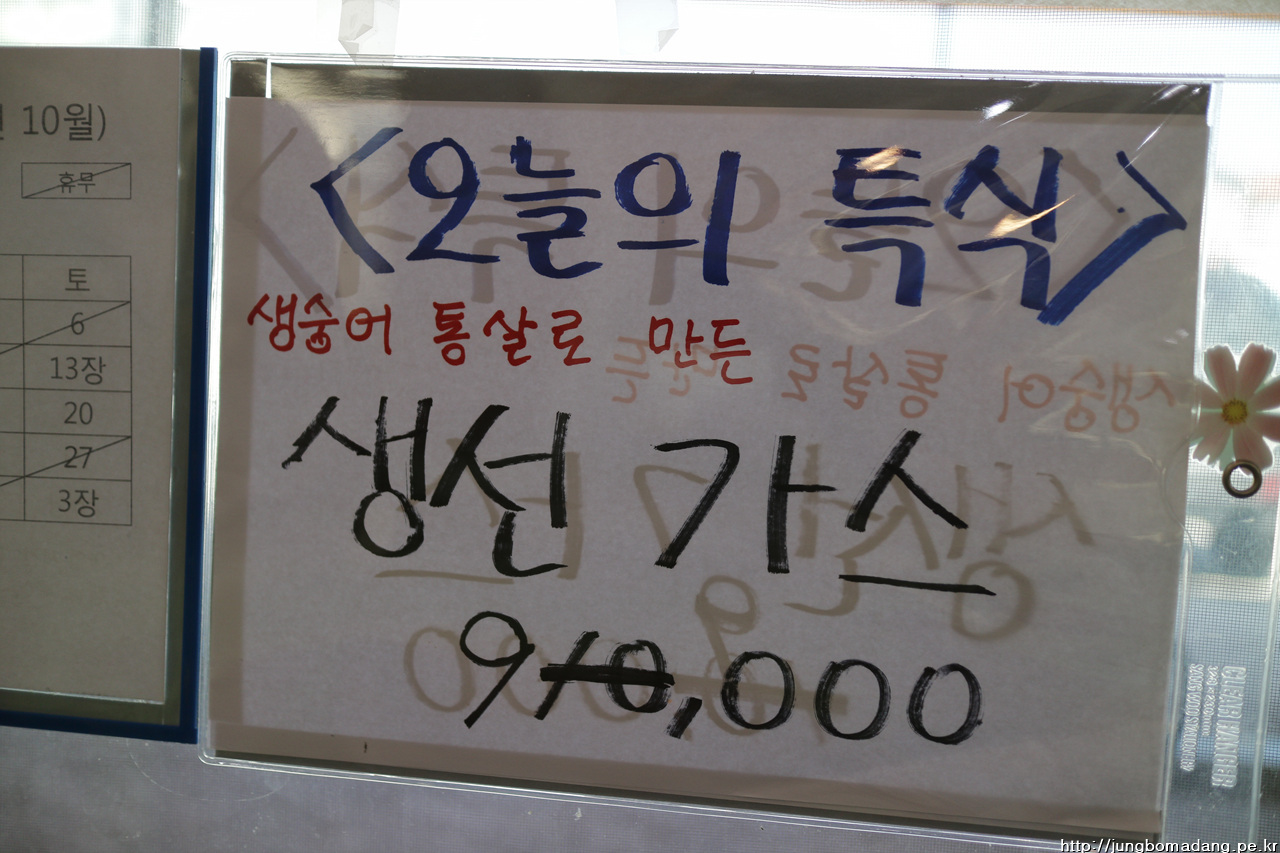 10월)
휴무
토
6
13장
20
27
3장
<오늘의 특식>
생숭어 통살로 만든
생선 가스
9 10,000
http://jungbomadang.pe.kr